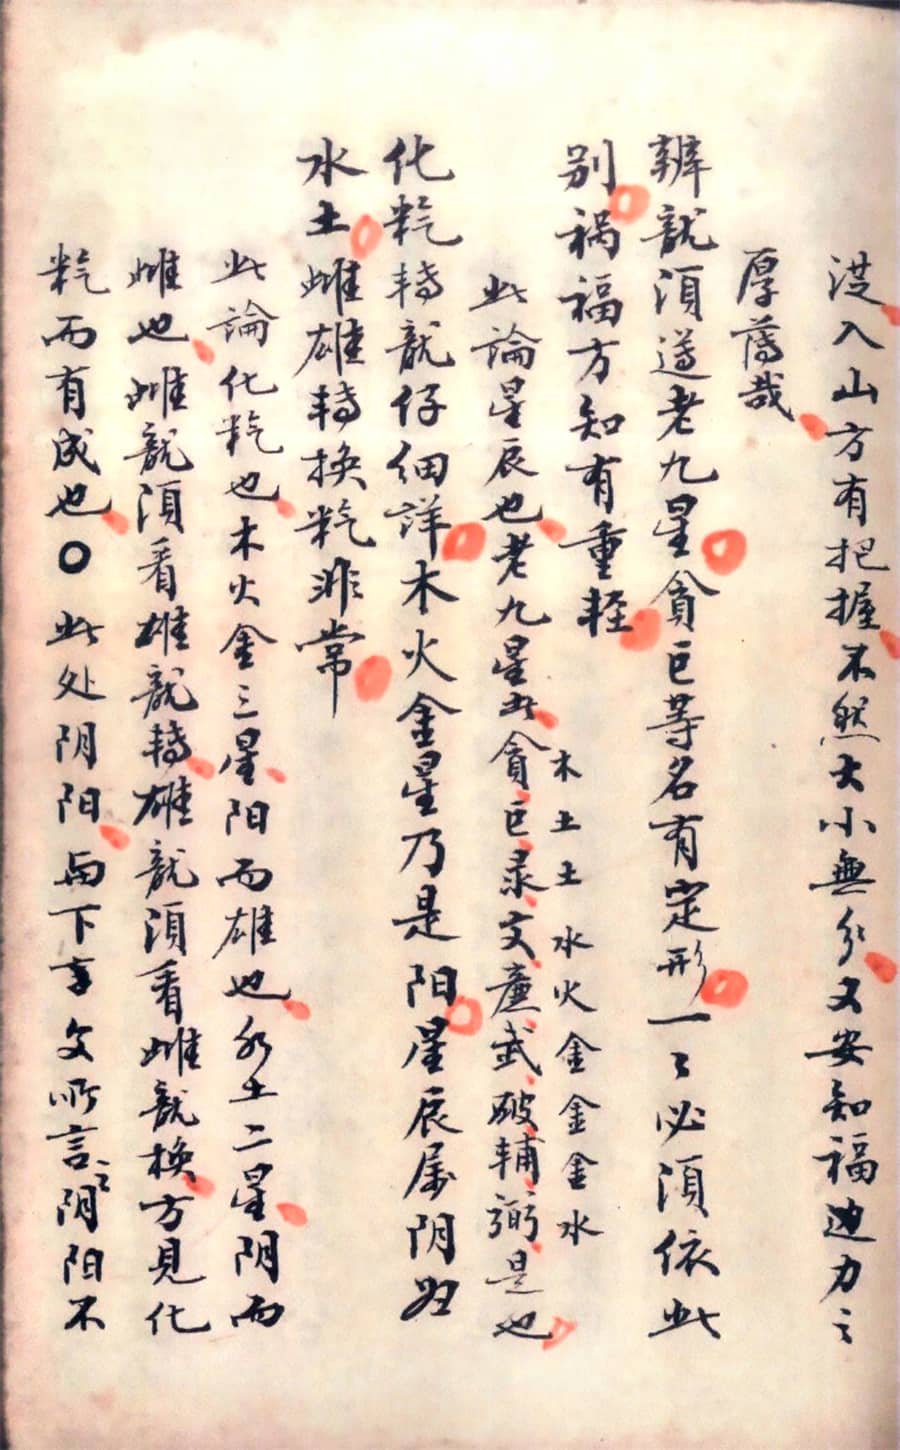 从入山方有把握不然大小無分又安知福迪力之
厚薄哉
辨龍須遵老九星貪巨等名有定形一々必須依此
别祸福方知有重輕
此論星辰也老九星此貪巨录文廉武破辅弼是也
木土土水火金金金水
化粃轉龍仔细詳木火金星乃是阳星辰属阴
水土雌雄轉换粃非常
此論化粃也木火金三星阳而雄也水土二星阴而
雌也雌龍須看雄龍轉雄龍須看雌龍换方見化
粃而有成也〇此处阴阳與下章文所言之阴阳不